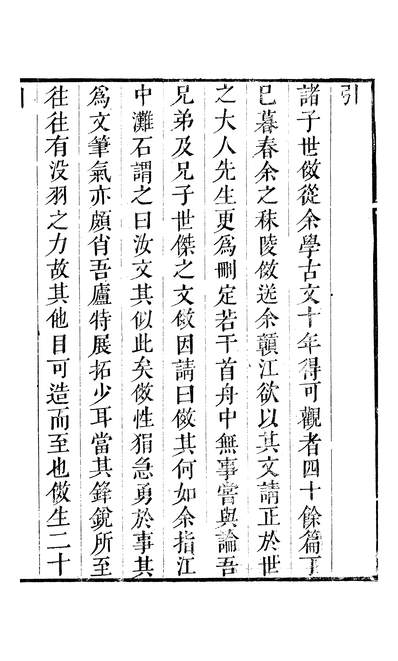 引
諸子世傚從余學古文十年得可觀者四十餘篇丁
巳暮春余之秣陵傚送余贛江欲以其文請正於世
之大人先生更爲刪定若干首舟中無事嘗與論吾
兄弟及兄子世傑之文傚因請曰傚其何如余指江
中灘石謂之曰汝文其似此矣傚性狷急勇於事其
爲文筆氣亦頗肖吾廬特展拓少耳當其鋒銳所至
往往有没羽之力故其他目可造而至也傚生二十